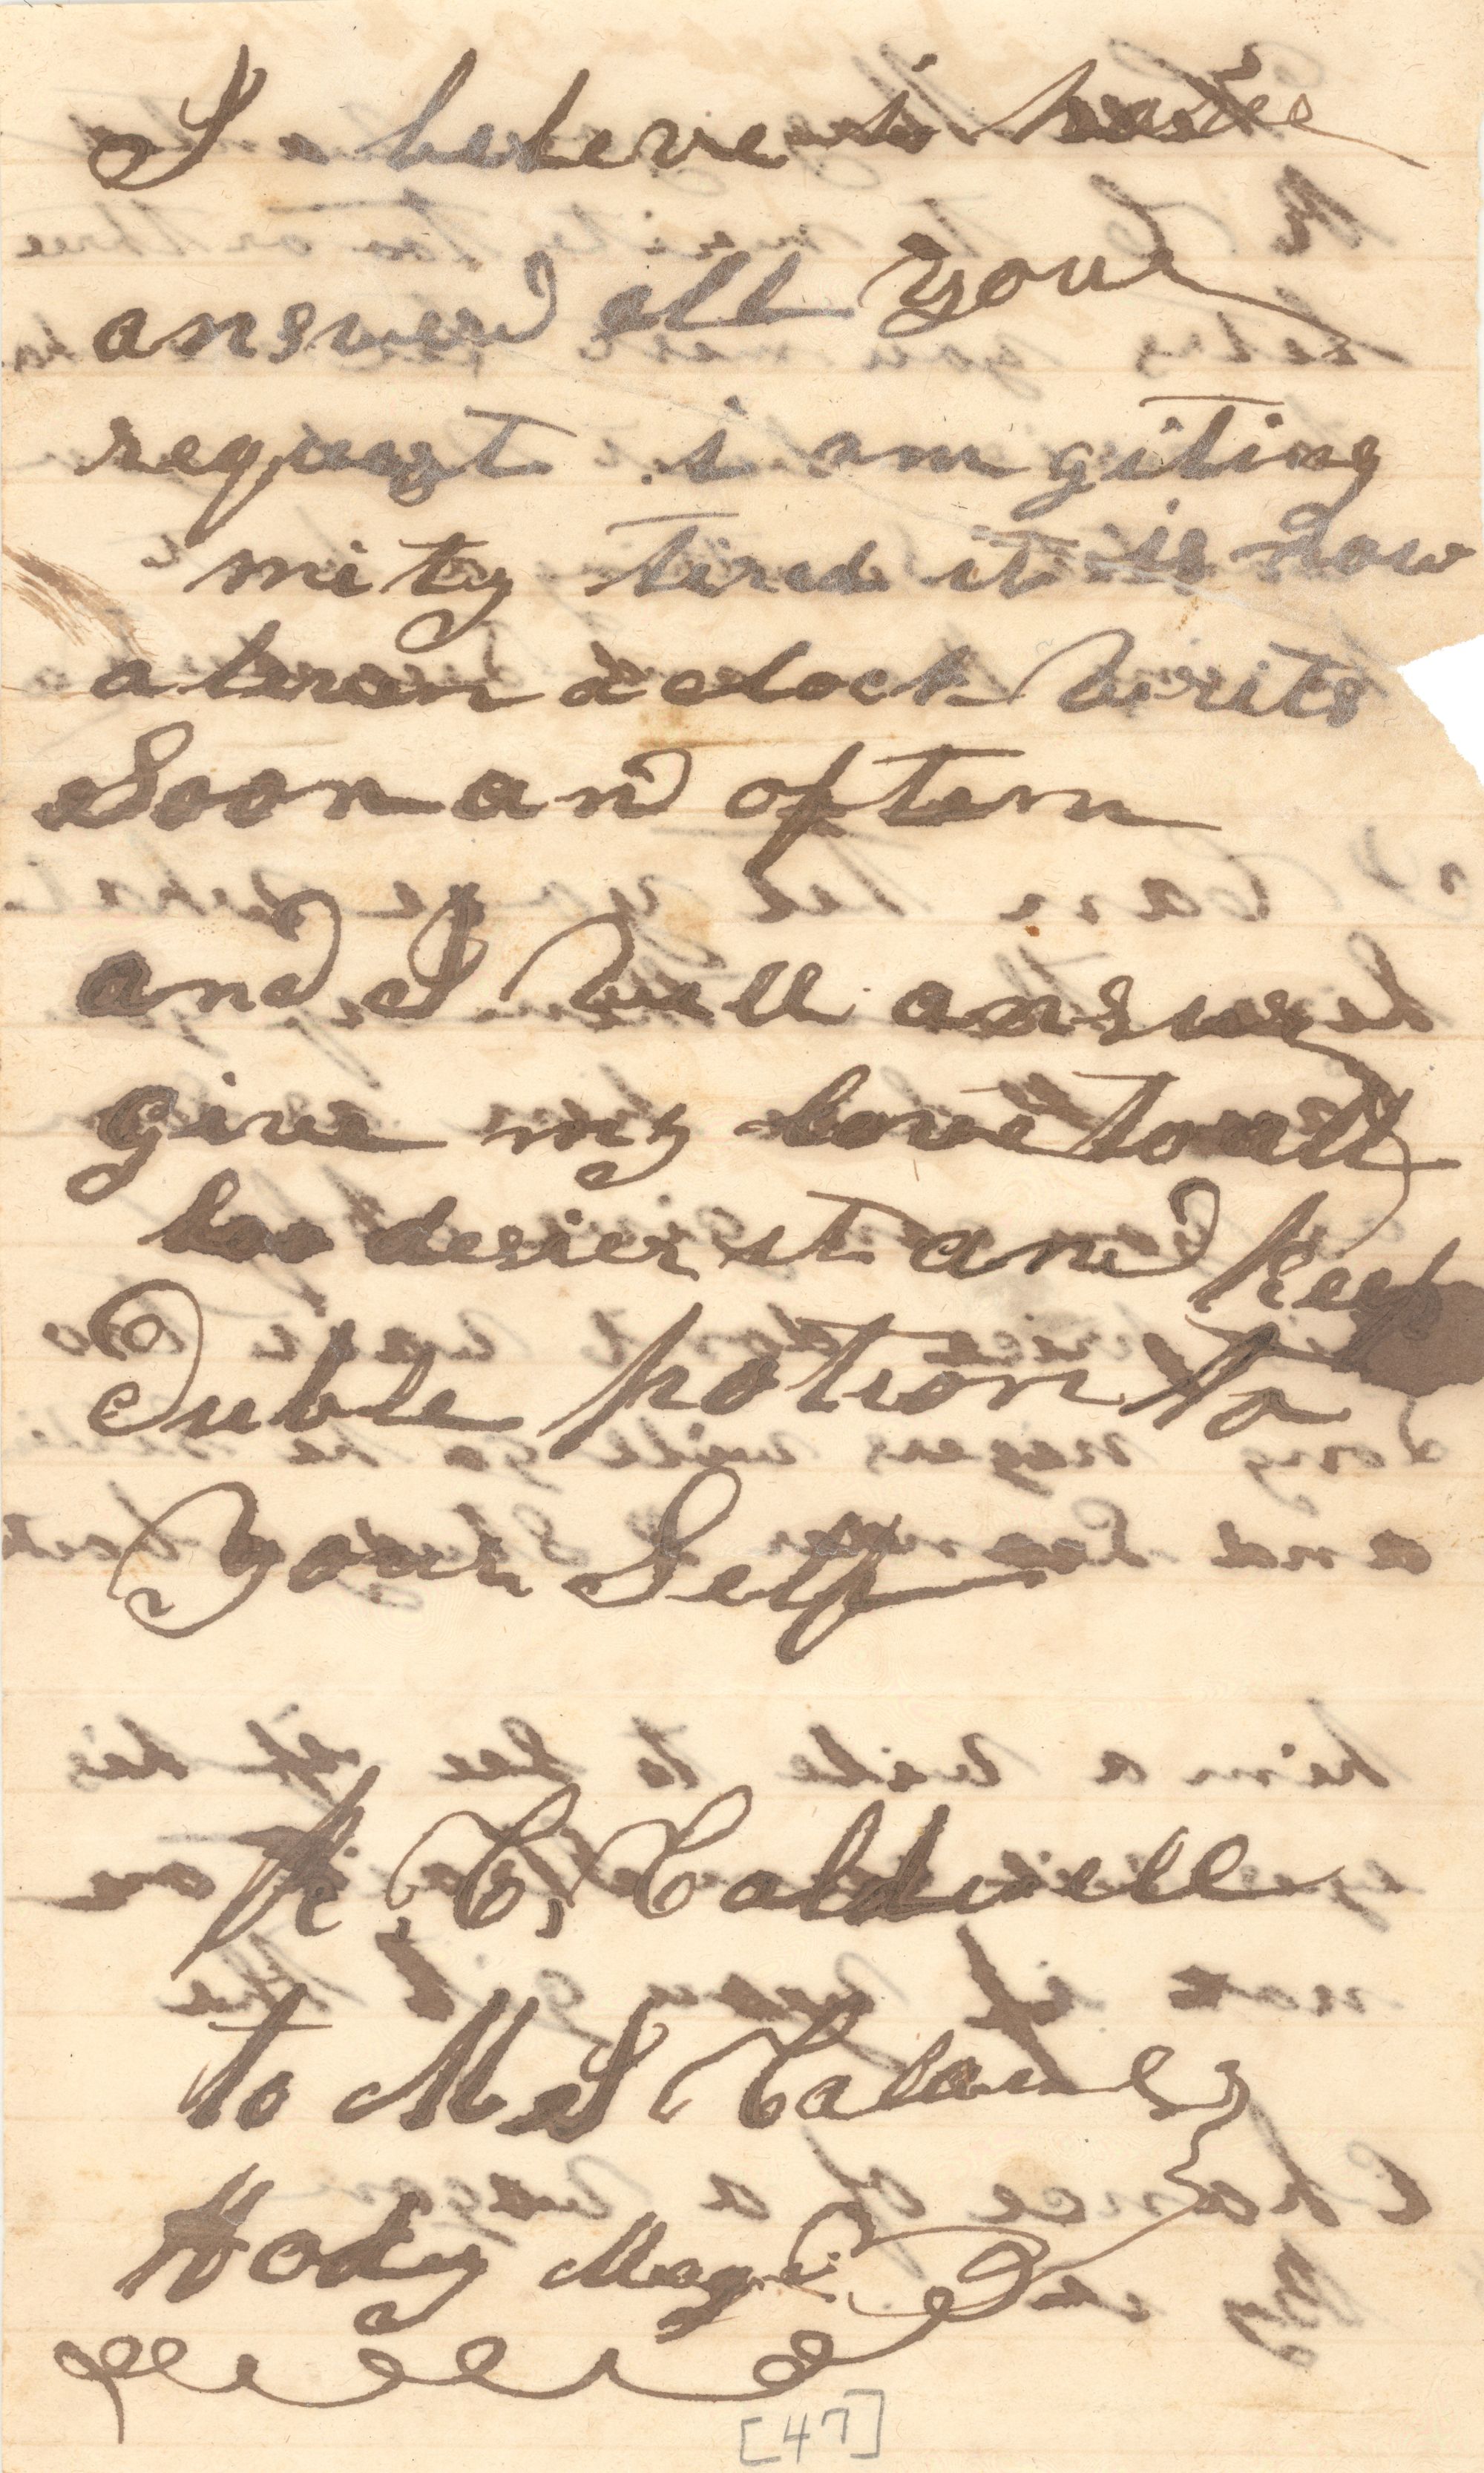 I beleve i have
answerd all your
request i am giting
mity tired it is now
a leven a clock write
Soon and oftern
and I will answer
give my love to all
hoo desier it and keep
Duble potion to
your Self
R, C, Caldwell
to M S Calawes
Hody Magie
[47]